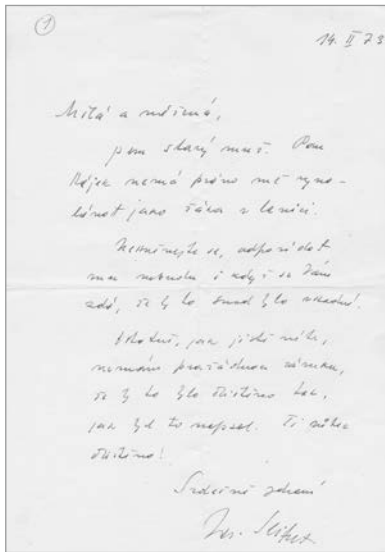 1
14. II 73
Milá a vážená,
jsem starý muž. Pan
Hájek nemá právo mě vyvo-
lávat jako žáka z lavici.
Nehněvejte se, odpovídat
mu nebudu i když se Vám
zdá, že by to snad bylo snadné.
Ostatně, jak jistě víte,
nemáme pražádnou záruku,
že by to bylo otištěno tak,
jak byl to napsal. Či vůbec
otištěno!
Srdečně zdraví
Jar. Seifert